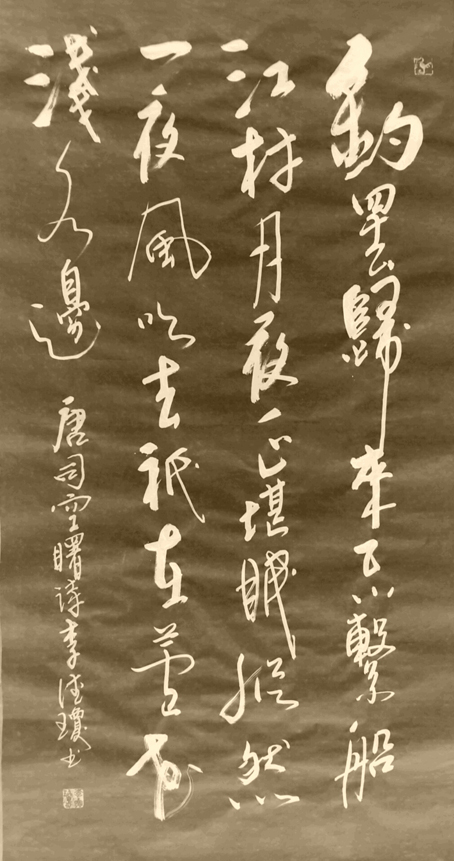 釣罷歸來不繫船
江村月夜正堪眠縱然
一夜風吹去祇在蘆花
淺水邊
唐司空曙詩李德瓊书